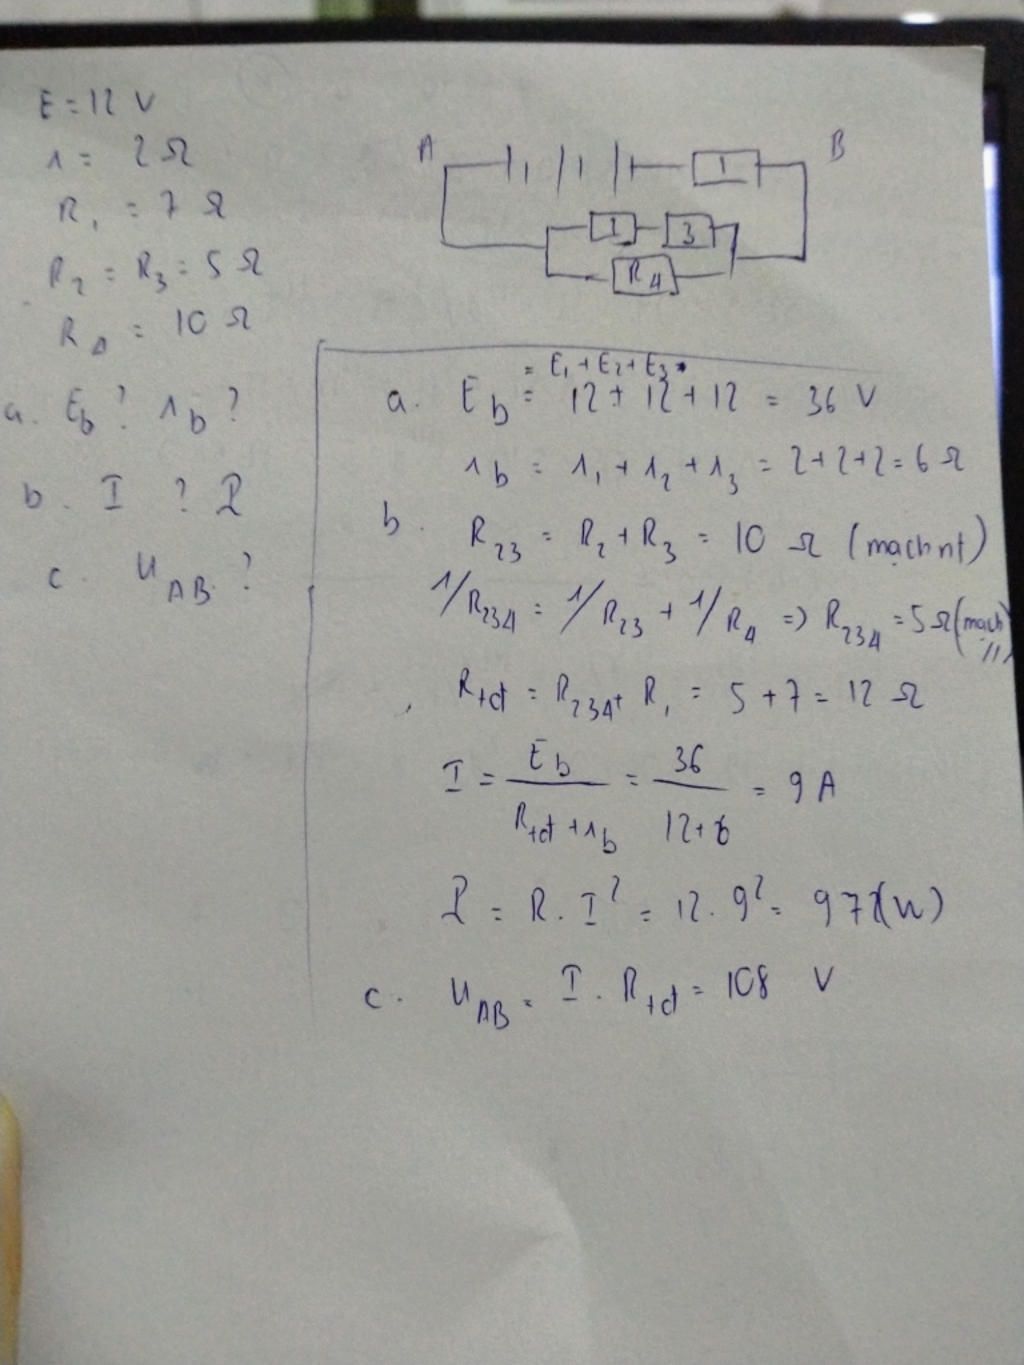 E = 12 V
r = 2 Ω
R₁ = 7 Ω
R₂ = R₃ = 5 Ω
R₄ = 10 Ω
a. E_b ? r_b ?
b. I ? P
c. U_AB ?
A B
1
2 3
R₄
= E₁ + E₂ + E₃
a. E_b = 12 + 12 + 12 = 36 V
r_b = r₁ + r₂ + r₃ = 2+2+2 = 6 Ω
b. R₂₃ = R₂ + R₃ = 10 Ω (mạch nt)
1/R₂₃₄ = 1/R₂₃ + 1/R₄ => R₂₃₄ = 5 Ω (mạch //)
R_tđ = R₂₃₄ + R₁ = 5 + 7 = 12 Ω
I = E_b / (R_tđ + r_b) = 36 / (12+6) = 9 A
P = R . I² = 12 . 9² = 972 (W)
c. U_AB = I . R_tđ = 108 V